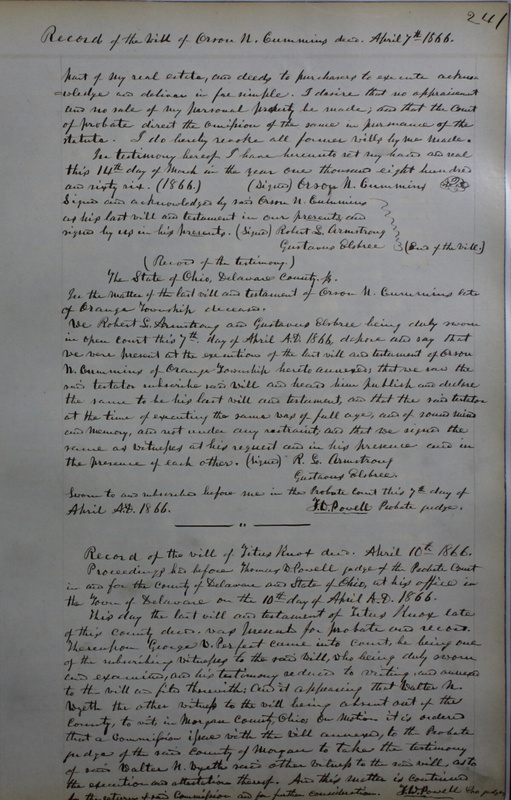 241
Record of the Will of Orson N. Cummins decd. April 7th 1866.
part of my real estate, and deeds to purchasers to execute acknow
=ledge and deliver in fee simple. I desire that no appraisement
and no sale of my personal property be made, and that the Court
of probate direct the omission of the same in pursuance of the
statute. I do hereby revoke all former wills by me made.
In testimony hereof I have hereunto set my hand and seal
this 14th day of March in the year one thousand eight hundred
and sixty six. (1866.) (Signed) Orson N. Cummins
Signed and acknowledged by said Orson N. Cummins
as his last will and testament in our presence, and
signed by us in his presence. (Signed) Robert L. Armstrong
Gustavus Elsbree (End of the Will.)
(Record of the testimony)
The State of Ohio, Delaware County, ss.
In the matter of the last will and testament of Orson N. Cummins late
of Orange Township deceased.
We Robert L. Armstrong and Gustavus Elsbree being duly sworn
in open court this 7th day of April A.D. 1866, depose and say that
we were present at the execution of the last will and testament of Orson
N. Cummins of Orange Township hereto annexed, that we saw the
said testator subscribe said will and heard him publish and declare
the same to be his last will and testament, and that the said testator
at the time of executing the same was of full age, and of sound mind
and memory, and not under any restraint, and that we signed the
same as witnesses at his request and in his presence and in
the presence of each other. (Signed) R. L. Armstrong
Gustavus Elsbree
Sworn to and subscribed before me in the Probate Court this 7th day of
April A.D. 1866. T.W. Powell Probate judge.
Record of the will of Titus Knox decd. April 10th 1866.
Proceedings had before Thomas W. Powell judge of the Probate Court
in and for the County of Delaware and State of Ohio, at his office in
the Town of Delaware on the 10th day of April A.D. 1866.
This day the last will and testament of Titus Knox late
of this County decd. was presented for probate and record.
Thereupon George W. Perfect came into court, he being one
of the subscribing witnesses to the said Will, who being duly sworn
and examined, and his testimony reduced to writing, and annexed
to the will and filed therewith; And it appearing that Walter N.
Wyeth the other witness to the will being absent out of the
County, to wit, in Morgan County, Ohio, On Motion it is ordered
that a Commission issue with the will annexed, to the Probate
judge of the said County of Morgan to take the testimony
of said Walter N. Wyeth said other witness to the said will, as to
the execution and attestation thereof. And this matter is continued
for the return of said Commission and for further consideration. T.W. Powell Pro. judge